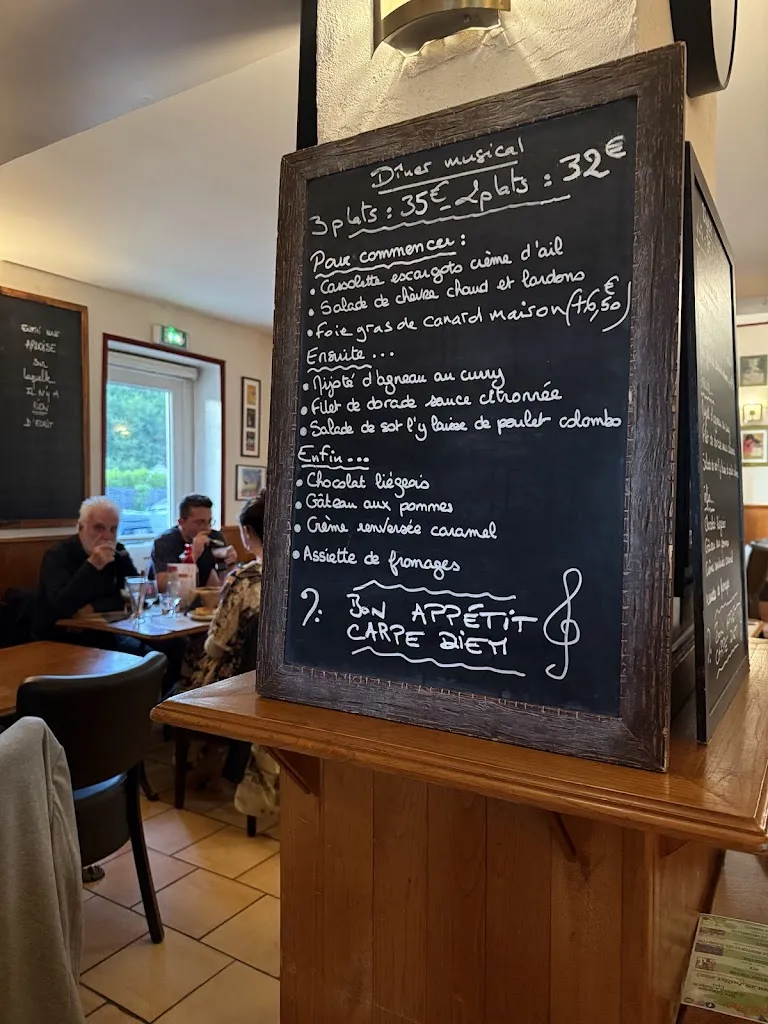 Dîner musical
3 plats : 35€ 2 plats : 32€
Pour commencer :
• Cassolette escargots crème d'ail
• Salade de chèvre chaud et lardons
• Foie gras de canard maison (+6,50€)
Ensuite ...
• Mijoté d'agneau au curry
• Filet de dorade sauce citronnée
• Salade de sot l'y laisse de poulet colombo
Enfin ...
• Chocolat liégeois
• Gâteau aux pommes
• Crème renversée caramel
• Assiette de fromages
BON APPÉTIT
CARPE DIEM
ARDOISE
Sur
laquelle
IL N'Y A
RIEN
D'ECRIT